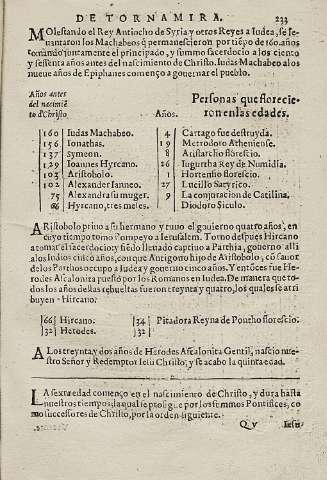 DE TORNAMIRA. 233
MOlestando el Rey Antiocho de Syria y otros Reyes a Iudea, se le-
uantaron los Machabeos q̃ permanescieron por tiẽpo de 160. años
tomando juntamente el principado, y summo sacerdocio a los ciento
y sessenta años antes del nascimiento de Christo. Iudas Machabeo a los
nueue años de Epiphanes començo a gouernar el pueblo.
Años antes
del nacimiẽ
to d'Christo
Años.
Personas que florecie-
ron en las edades.
160 Iudas Machabeo. 4 Cartago fue destruyda.
156 Ionathas. 19 Metrodoro Atheniense.
137 Symeon. 8 Aristarcho florescio.
129 Ioannes Hyrcano. 26 Iugurtha Rey de Numidia.
103 Aristobolo. 1 Hortensio florescio.
102 Alexander Ianneo. 27 Lucillo Satyrico.
75 Alexandra su muger. 9 La conjuracion de Catilina.
66 Hyrcano, tres meses. Diodoro Siculo.
ARistobolo priuo a su hermano y tuuo el gouierno quatro años, en
cuyo tiempo tomo Pompeyo a Ierusalem. Torno despues Hircano
a tomar el sacerdocio y siẽdo lleuado captiuo a Parthia, gouerno alli
a los Iudios cinco años, con que Antigono hijo de Aristobolo, cõ fauor
de los Parthos occupo a Iudea y gouerno cinco años. Y entõces fue He-
rodes Ascalonita puesto por los Romanos en Iudea. De manera que to-
dos los años destas rebueltas fueron treynta y quatro, los quales se atri
buyen a Hircano.
66 Hircano. 34 Pitadora Reyna de Pontho florescio.
32 Herodes. 32
A Los treynta y dos años de Herodes Ascalonita Gentil, nascio nue-
stro Señor y Redemptor Iesu Christo, y se acabo la quinta edad.
LA sexta edad començo en el nascimiento de Christo, y dura hasta
nuestros tiempos, la qual se prosigue por los summos Pontifices, co
mo successores de Christo, por la orden siguiente.
Q v Iesu